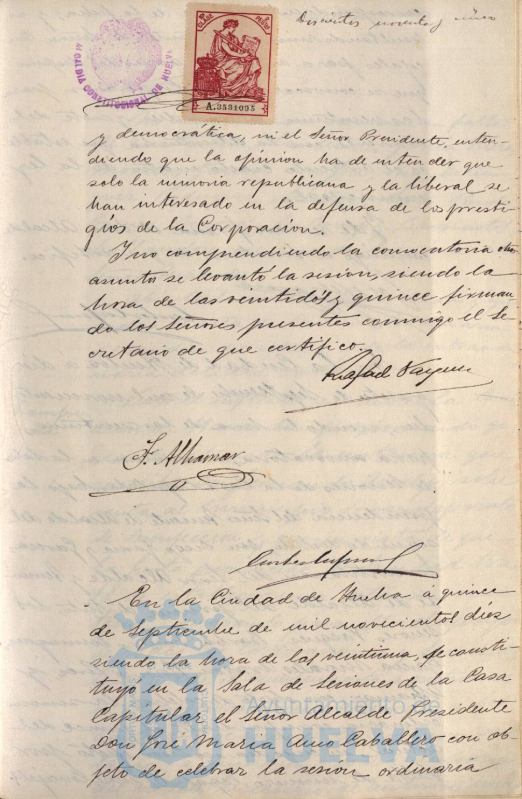 Doscientos noventa y cinco
ALCALDIA CONSTITUCIONAL DE HUELVA
1 PESETA
A.3531095
y democrática, ni el Señor Presidente, enten-
diendo que la opinion ha de entender que
solo la minoria republicana y la liberal se
han interesado en la defensa de los presti-
gios de la Corporacion.
Y no comprendiendo la convocatoria otro
asunto se levantó la sesion, siendo la
hora de las veintidós y quince firman-
do los Señores presentes conmigo el Se-
cretario de que certifico.
Rafael Vazquez
F. Alhamar
En la Ciudad de Huelva a quince
de Septiembre de mil novecientos diez
siendo la hora de las veintiuna, se consti-
tuyó en la Sala de Sesiones de la Casa
Capitular el Señor Alcalde Presidente
Don José Maria Amo Caballero con ob-
jeto de celebrar la sesión ordinaria
Ayuntamiento de
HUELVA